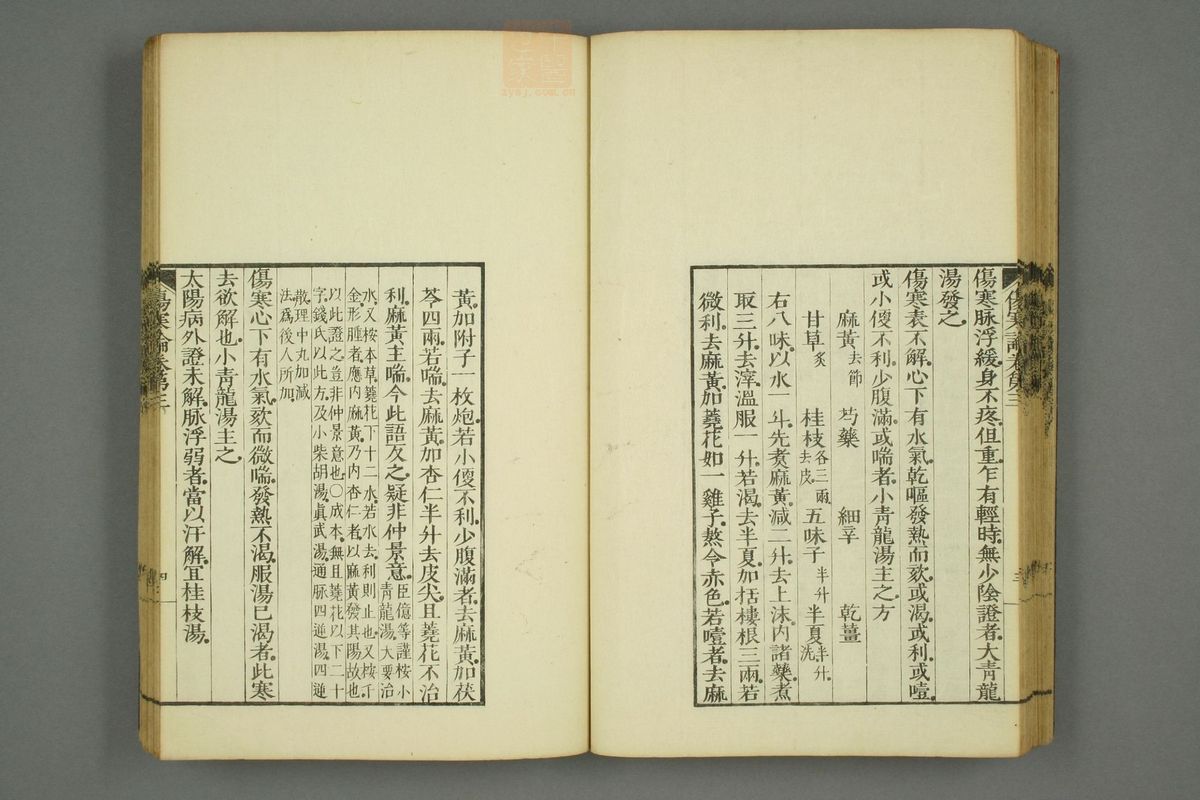 傷寒脉浮緩身不疼但重乍有輕時無少陰證者大青龍
湯發之
傷寒表不解心下有水氣乾嘔發熱而欬或渴或利或噎
或小便不利少腹滿或喘者小青龍湯主之方
麻黃去節 芍藥 細辛 乾薑
甘草炙 桂枝各三兩去皮 五味子半升 半夏半升洗
右八味以水一斗先煮麻黃減二升去上沫內諸藥煮
取三升去滓溫服一升若渴去半夏加栝樓根三兩若
微利去麻黃加蕘花如一雞子熬令赤色若噎者去麻
傷寒論卷第三
黃加附子一枚炮若小便不利少腹滿者去麻黃加茯
苓四兩若喘去麻黃加杏仁半升去皮尖且蕘花不治
利麻黃主喘今此語反之疑非仲景意臣億等謹桉小
青龍湯大要治
水又桉本草蕘花下十二水若水去利則止也又桉千
金形腫者應內麻黃乃內杏仁者以麻黃發其陽故也
以此證之豈非仲景意也〇成本無且蕘花以下二十
字錢氏以此方及小柴胡湯眞武湯通脉四逆湯四逆
散理中丸加減
法爲後人所加
傷寒心下有水氣欬而微喘發熱不渴服湯已渴者此寒
去欲解也小青龍湯主之
太陽病外證未解脉浮弱者當以汗解宜桂枝湯
傷寒論卷第三
四
zysj.com.cn